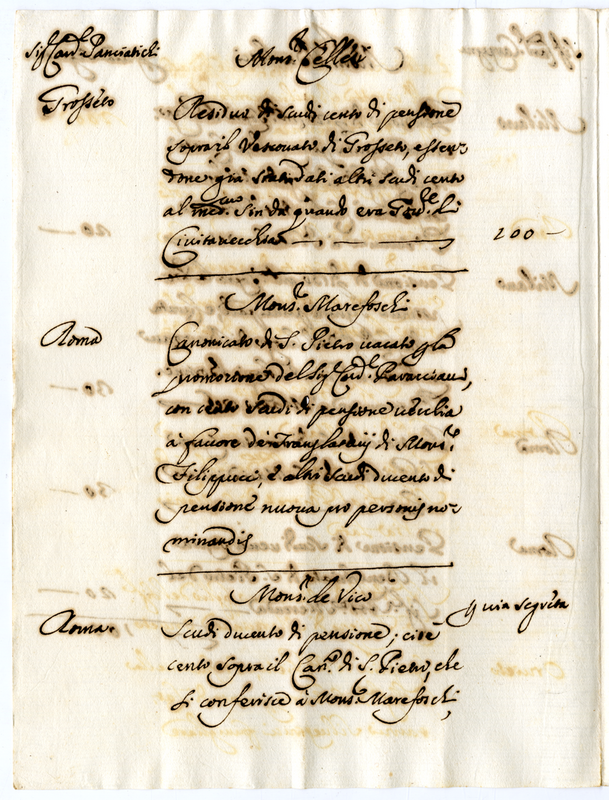 Sig.r Card. Panciatichi
Mons.r Celleri
Grosseto
Residuo di scudi cento di pensione
sopra il Vescovato di Grosseto, essen-
done già stati dati altri scudi cento
al med.mo sin da quando era Gov.re di
Civitavecchia — 200 —
Mons.r Marefoschi
Roma
Canonicato di S. Pietro vacato p la
promozione del Sig. Card.
con cento scudi di pensione vecchia
à favore di Mons.r
Filippucci, e altri scudi ducento di
pensione nuova pro personis no-
minandis
Mons.r de Vico
Roma
Scudi ducento di pensione; cioè
cento sopra il Can.to di S. Pietro, che
si conferisce à Mons.r Marefoschi,